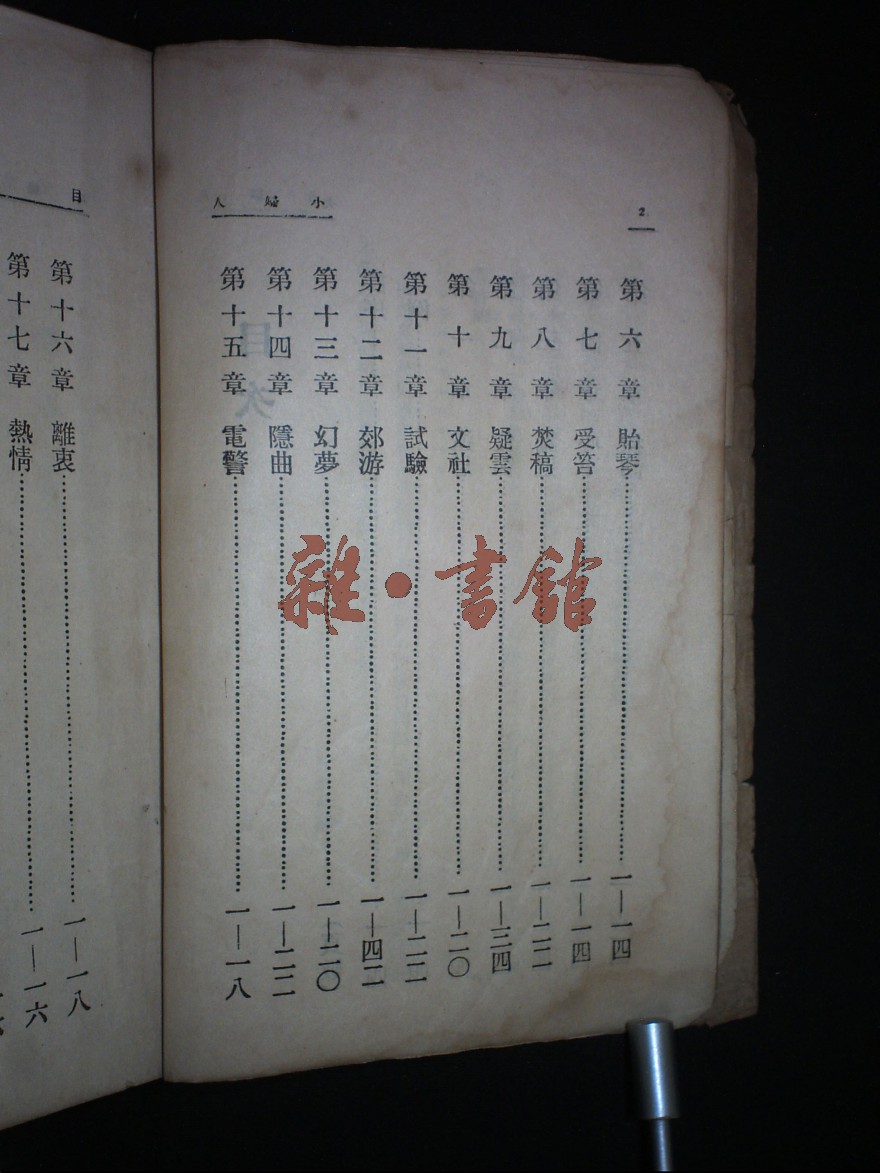 2
小婦人
第六章 貽琴……一—一四
第七章 受笞……一—一四
第八章 焚稿……一—二二
第九章 疑雲……一—三四
第十章 文社……一—二〇
第十一章 試驗……一—二二
第十二章 郊游……一—四二
第十三章 幻夢……一—二〇
第十四章 隱曲……一—二二
第十五章 電警……一—一八
目
第十六章 離衷……一—一八
第十七章 熱情……一—一六
雜·書館